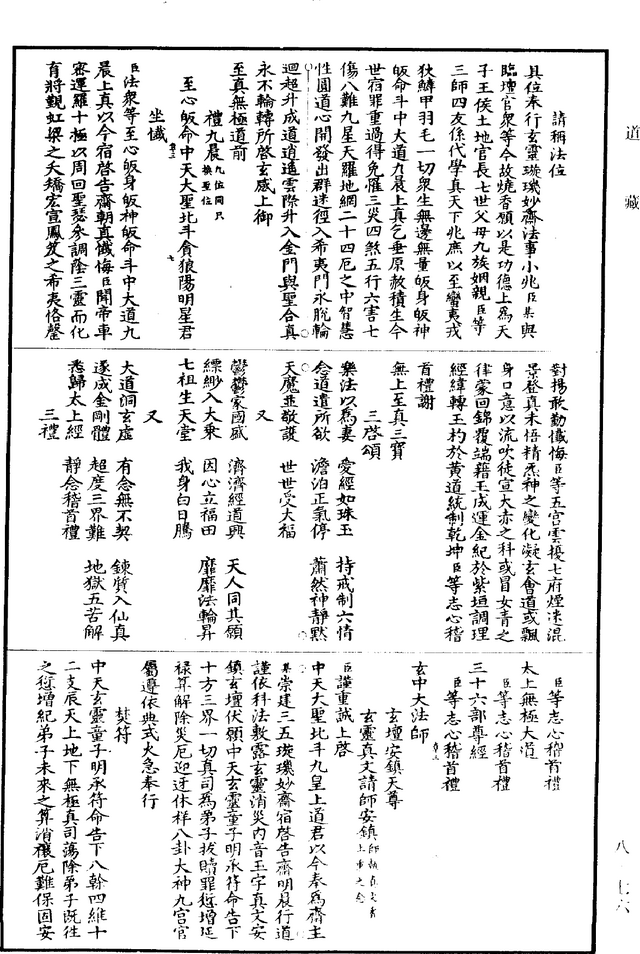 道藏
請稱法位
具位奉行玄靈璇璣妙齋法事小兆臣某與
臨壇官衆等今故燒香願以是功德上爲天
子王侯土地官長七世父母九族姻親臣等
三師四友係代學真天下兆庶以至蠻夷戎
狄鱗甲羽毛一切衆生無邊無量皈身皈神
皈命斗中大道九晨上真乞垂原赦積生今
世宿罪重過得免罹三災四煞五行六害七
傷八難九星天羅地網二十四厄之中智慧
性圓道心開發出群迷徑入希夷門永脫輪
迴超升成道逍遙雲際升入金門與聖合真
永不輪轉所啓玄感上御
至真無極道前
禮九晨九位同只換聖位
至心皈命中天大聖北斗貪狼陽明星君
坐懺
臣法衆等至心皈身皈神皈命斗中大道九
晨上真以今宿啓告齋朝真懺悔臣聞帝車
密運羅十極以周回聖瑟永調蔭三靈而化
育將觀虹梁之夭矯宏宣鳳笈之希夷俗聲
對揚敢勤懺悔臣等五宫雲擾七府煙迷混
景登真未悟精炁神之變化凝玄會道或飄
身口意以流吹徒宣大赤之科或冒女青之
律蒙回錦覆端藉玉成運金紀於紫垣調理
經緯轉玉杓於黃道統制乾坤臣等志心稽
首禮謝
無上至真三寶
三啓頌
樂法以爲妻　愛經如珠玉　持戒制六情
念道遣所欲　澹泊正氣停　蕭然神靜默
天魔並敬護　世世受大福
又
鬱鬱家國盛　濟濟經道興　天人同其願
縹緲入大乘　因心立福田　靡靡法輪昇
七祖生天堂　我身白日騰
又
大道洞玄虛　有念無不契　鍊質入仙真
遂成金剛體　超度三界難　地獄五苦解
悉歸太上經　靜念稽首禮
三禮
臣等志心稽首禮
太上無極大道
臣等志心稽首禮
三十六部尊經
臣等志心稽首禮
玄中大法師
玄壇安鎮天尊
玄靈真文請師安鎮
臣謹重誠上啓
中天大聖北斗九皇上道君以今奉爲齋主
某崇建三五璇璣妙齋宿啓告齋明晨行道
謹依科法敷露玄靈消災內音玉字真文安
鎮玄壇伏願中天玄靈童子明承符命告下
十方三界一切真司爲弟子拔贖罪愆增延
祿算解除災厄迎迓休祥八卦大神九宫官
屬遵依典式火急奉行
焚符
中天玄靈童子明承符命告下八幹四維十
二支辰天上地下無極真司蕩除弟子既往
之愆增紀弟子未來之算消禳厄難保固安
八　七六